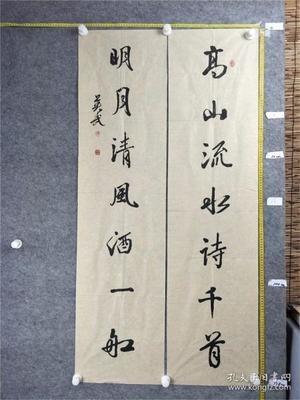 高山流水诗千首
明月清风酒一船
孔夫子旧书网